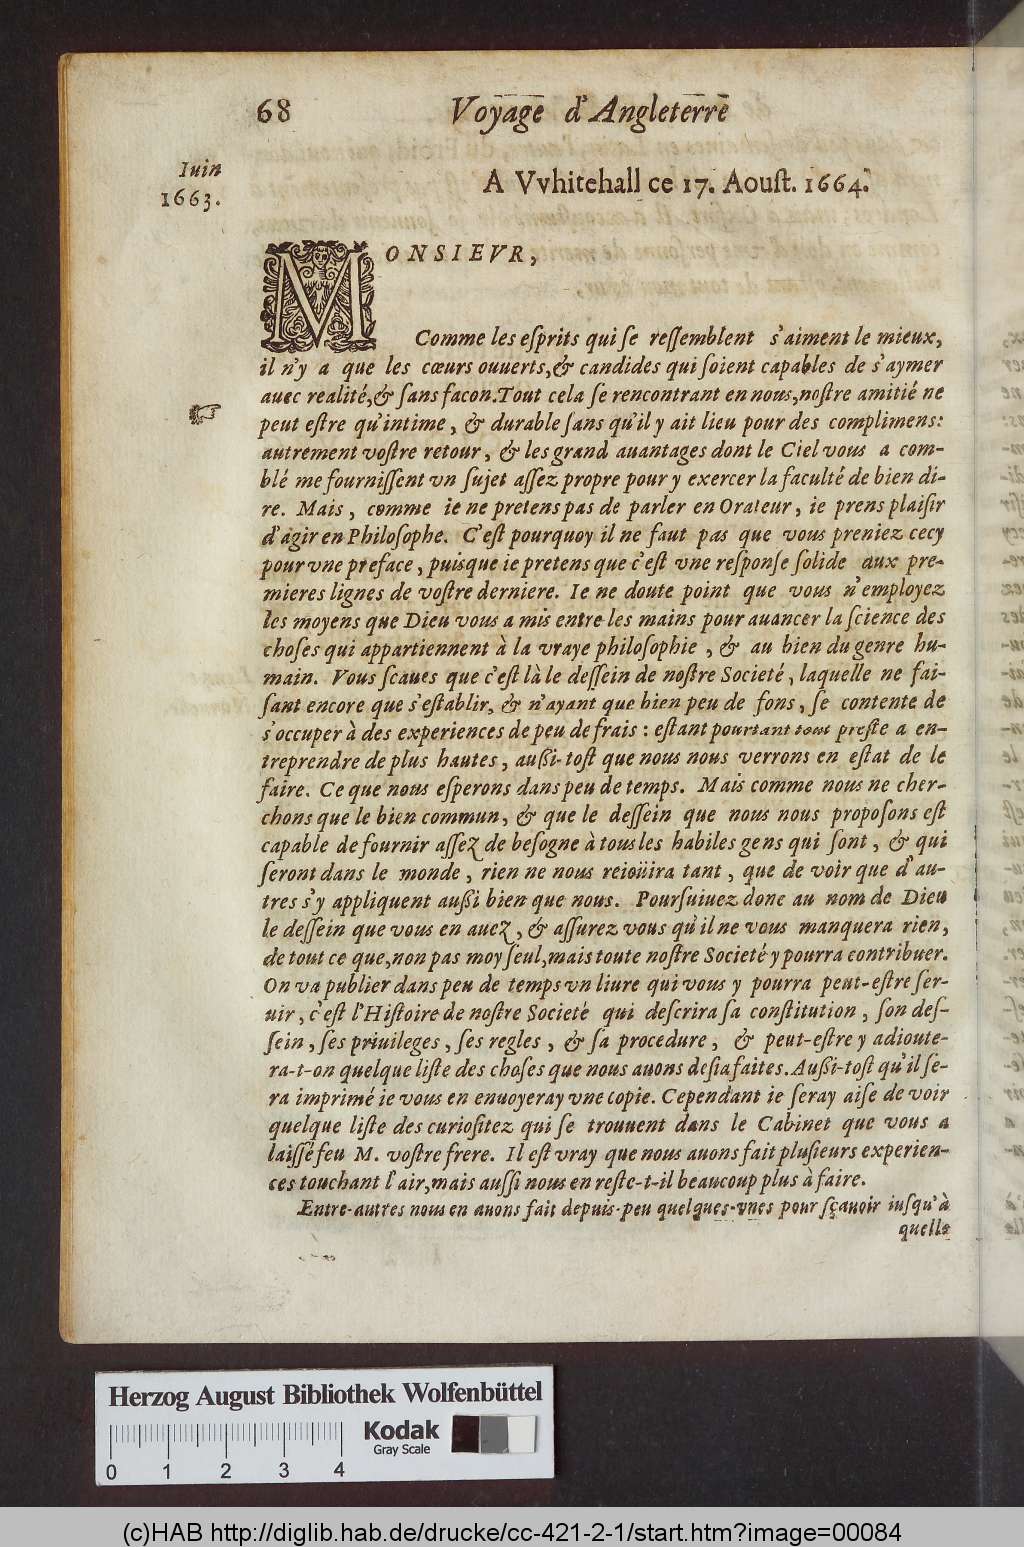 68
Voyage d'Angleterre
Iuin
1663.
A Vvhitehall ce 17. Aouſt. 1664.
MONSIEVR,
Comme les eſprits qui ſe reſſemblent s'aiment le mieux,
il n'y a que les cœurs ouuerts, & candides qui ſoient capables de s'aymer
auec realité, & ſans facon. Tout cela ſe rencontrant en nous, noſtre amitié ne
peut eſtre qu'intime, & durable ſans qu'il y ait lieu pour des complimens:
autrement voſtre retour, & les grand auantages dont le Ciel vous a com-
blé me fourniſſent vn ſujet aſſez propre pour y exercer la faculté de bien di-
re. Mais, comme ie ne pretens pas de parler en Orateur, ie prens plaiſir
d'agir en Philoſophe. C'eſt pourquoy il ne faut pas que vous preniez cecy
pour vne preface, puisque ie pretens que c'eſt vne reſponſe ſolide aux pre-
mieres lignes de voſtre derniere. Ie ne doute point que vous n'employez
les moyens que Dieu vous a mis entre les mains pour auancer la ſcience des
choſes qui appartiennent à la vraye philoſophie, & au bien du genre hu-
main. Vous ſcaues que c'eſt là le deſſein de noſtre Societé, laquelle ne fai-
ſant encore que s'eſtablir, & n'ayant que bien peu de fons, ſe contente de
s'occuper à des experiences de peu de frais: eſtant pourtant tout preſte a en-
treprendre de plus hautes, außi-toſt que nous nous verrons en eſtat de le
faire. Ce que nous eſperons dans peu de temps. Mais comme nous ne cher-
chons que le bien commun, & que le deſſein que nous nous propoſons eſt
capable de fournir aſſez de beſogne à tous les habiles gens qui ſont, & qui
ſeront dans le monde, rien ne nous reioüira tant, que de voir que d'au-
tres s'y appliquent außi bien que nous. Pourſuiuez donc au nom de Dieu
le deſſein que vous en auez, & aſſurez vous qu'il ne vous manquera rien,
de tout ce que, non pas moy ſeul, mais toute noſtre Societé y pourra contribuer.
On va publier dans peu de temps vn liure qui vous y pourra peut-eſtre ſer-
uir, c'eſt l'Hiſtoire de noſtre Societé qui deſcrira ſa conſtitution, ſon deſ-
ſein, ſes priuileges, ſes regles, & ſa procedure, & peut-eſtre y adioute-
ra-t-on quelque liſte des choſes que nous auons deſia faites. Außi-toſt qu'il ſe-
ra imprimé ie vous en enuoyeray vne copie. Cependant ie ſeray aiſe de voir
quelque liſte des curioſitez qui ſe trouuent dans le Cabinet que vous a
laiſſé feu M. voſtre frere. Il eſt vray que nous auons fait pluſieurs experien-
ces touchant l'air, mais auſſi nous en reſte-t-il beaucoup plus à faire.
Entre-autres nous en auons fait depuis-peu quelques-vnes pour ſçauoir iuſqu'à
quelle
Herzog August Bibliothek Wolfenbüttel
0 1 2 3 4
Kodak
Gray Scale
(c)HAB http://diglib.hab.de/drucke/cc-421-2-1/start.htm?image=00084